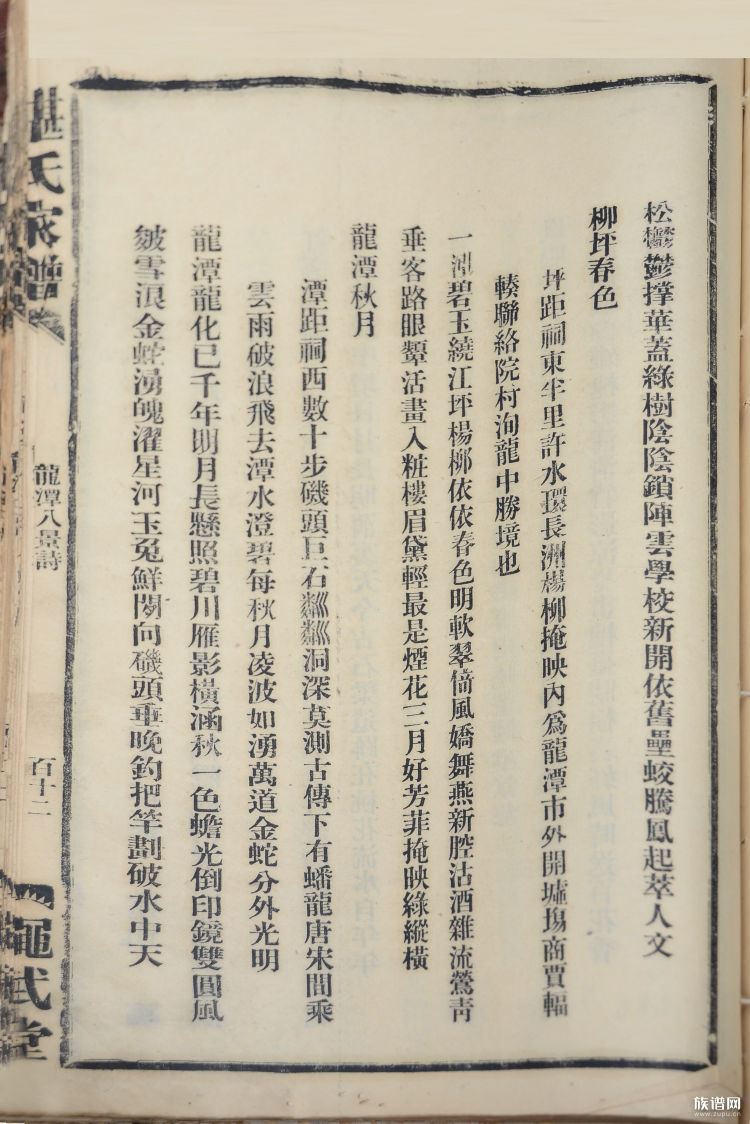 松欝鬱撑華蓋綠樹陰陰鎖陣雲學校新開依舊壘蛟騰鳳起萃人文
柳坪春色
坪距祠東半里許水環長洲楊柳掩映內爲龍潭市外開墟塲商賈輻
輳聯絡院村洵龍中勝境也
一潭碧玉繞江坪楊柳依依春色明軟翠偹風嬌舞燕新腔沽酒雜流鶯靑
垂客路眼顰活畫入粧樓眉黛輕最是煙花三月好芳菲掩映綠縱橫
龍潭秋月
潭距祠西數十步磯頭巨石粼粼洞深莫測古傳下有蟠龍唐宋間乘
雲雨破浪飛去潭水澄碧每秋月凌波如湧萬道金蛇分外光明
龍潭龍化已千年明月長懸照碧川雁影橫涵秋一色蟾光倒印鏡雙圓風
皴雪浪金蛇湧魄濯星河玉兔鮮閑向磯頭垂晚釣把竿劃破水中天
氏家譜
龍潭八景詩
百十二
繩武堂
族谱网
www.zupu.cn